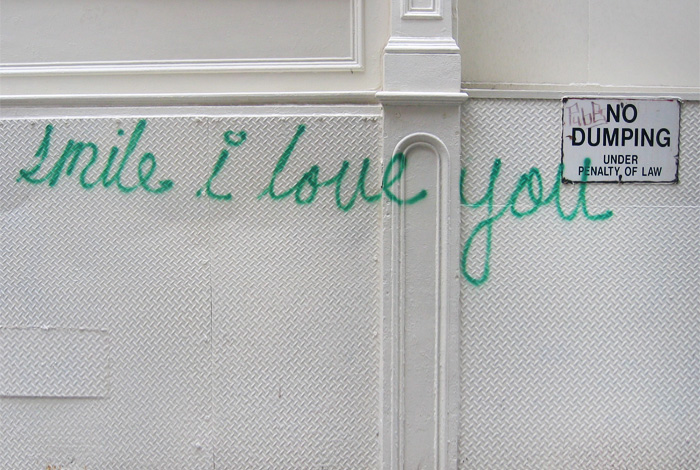 smile i love you
NO
DUMPING
UNDER
PENALTY OF LAW